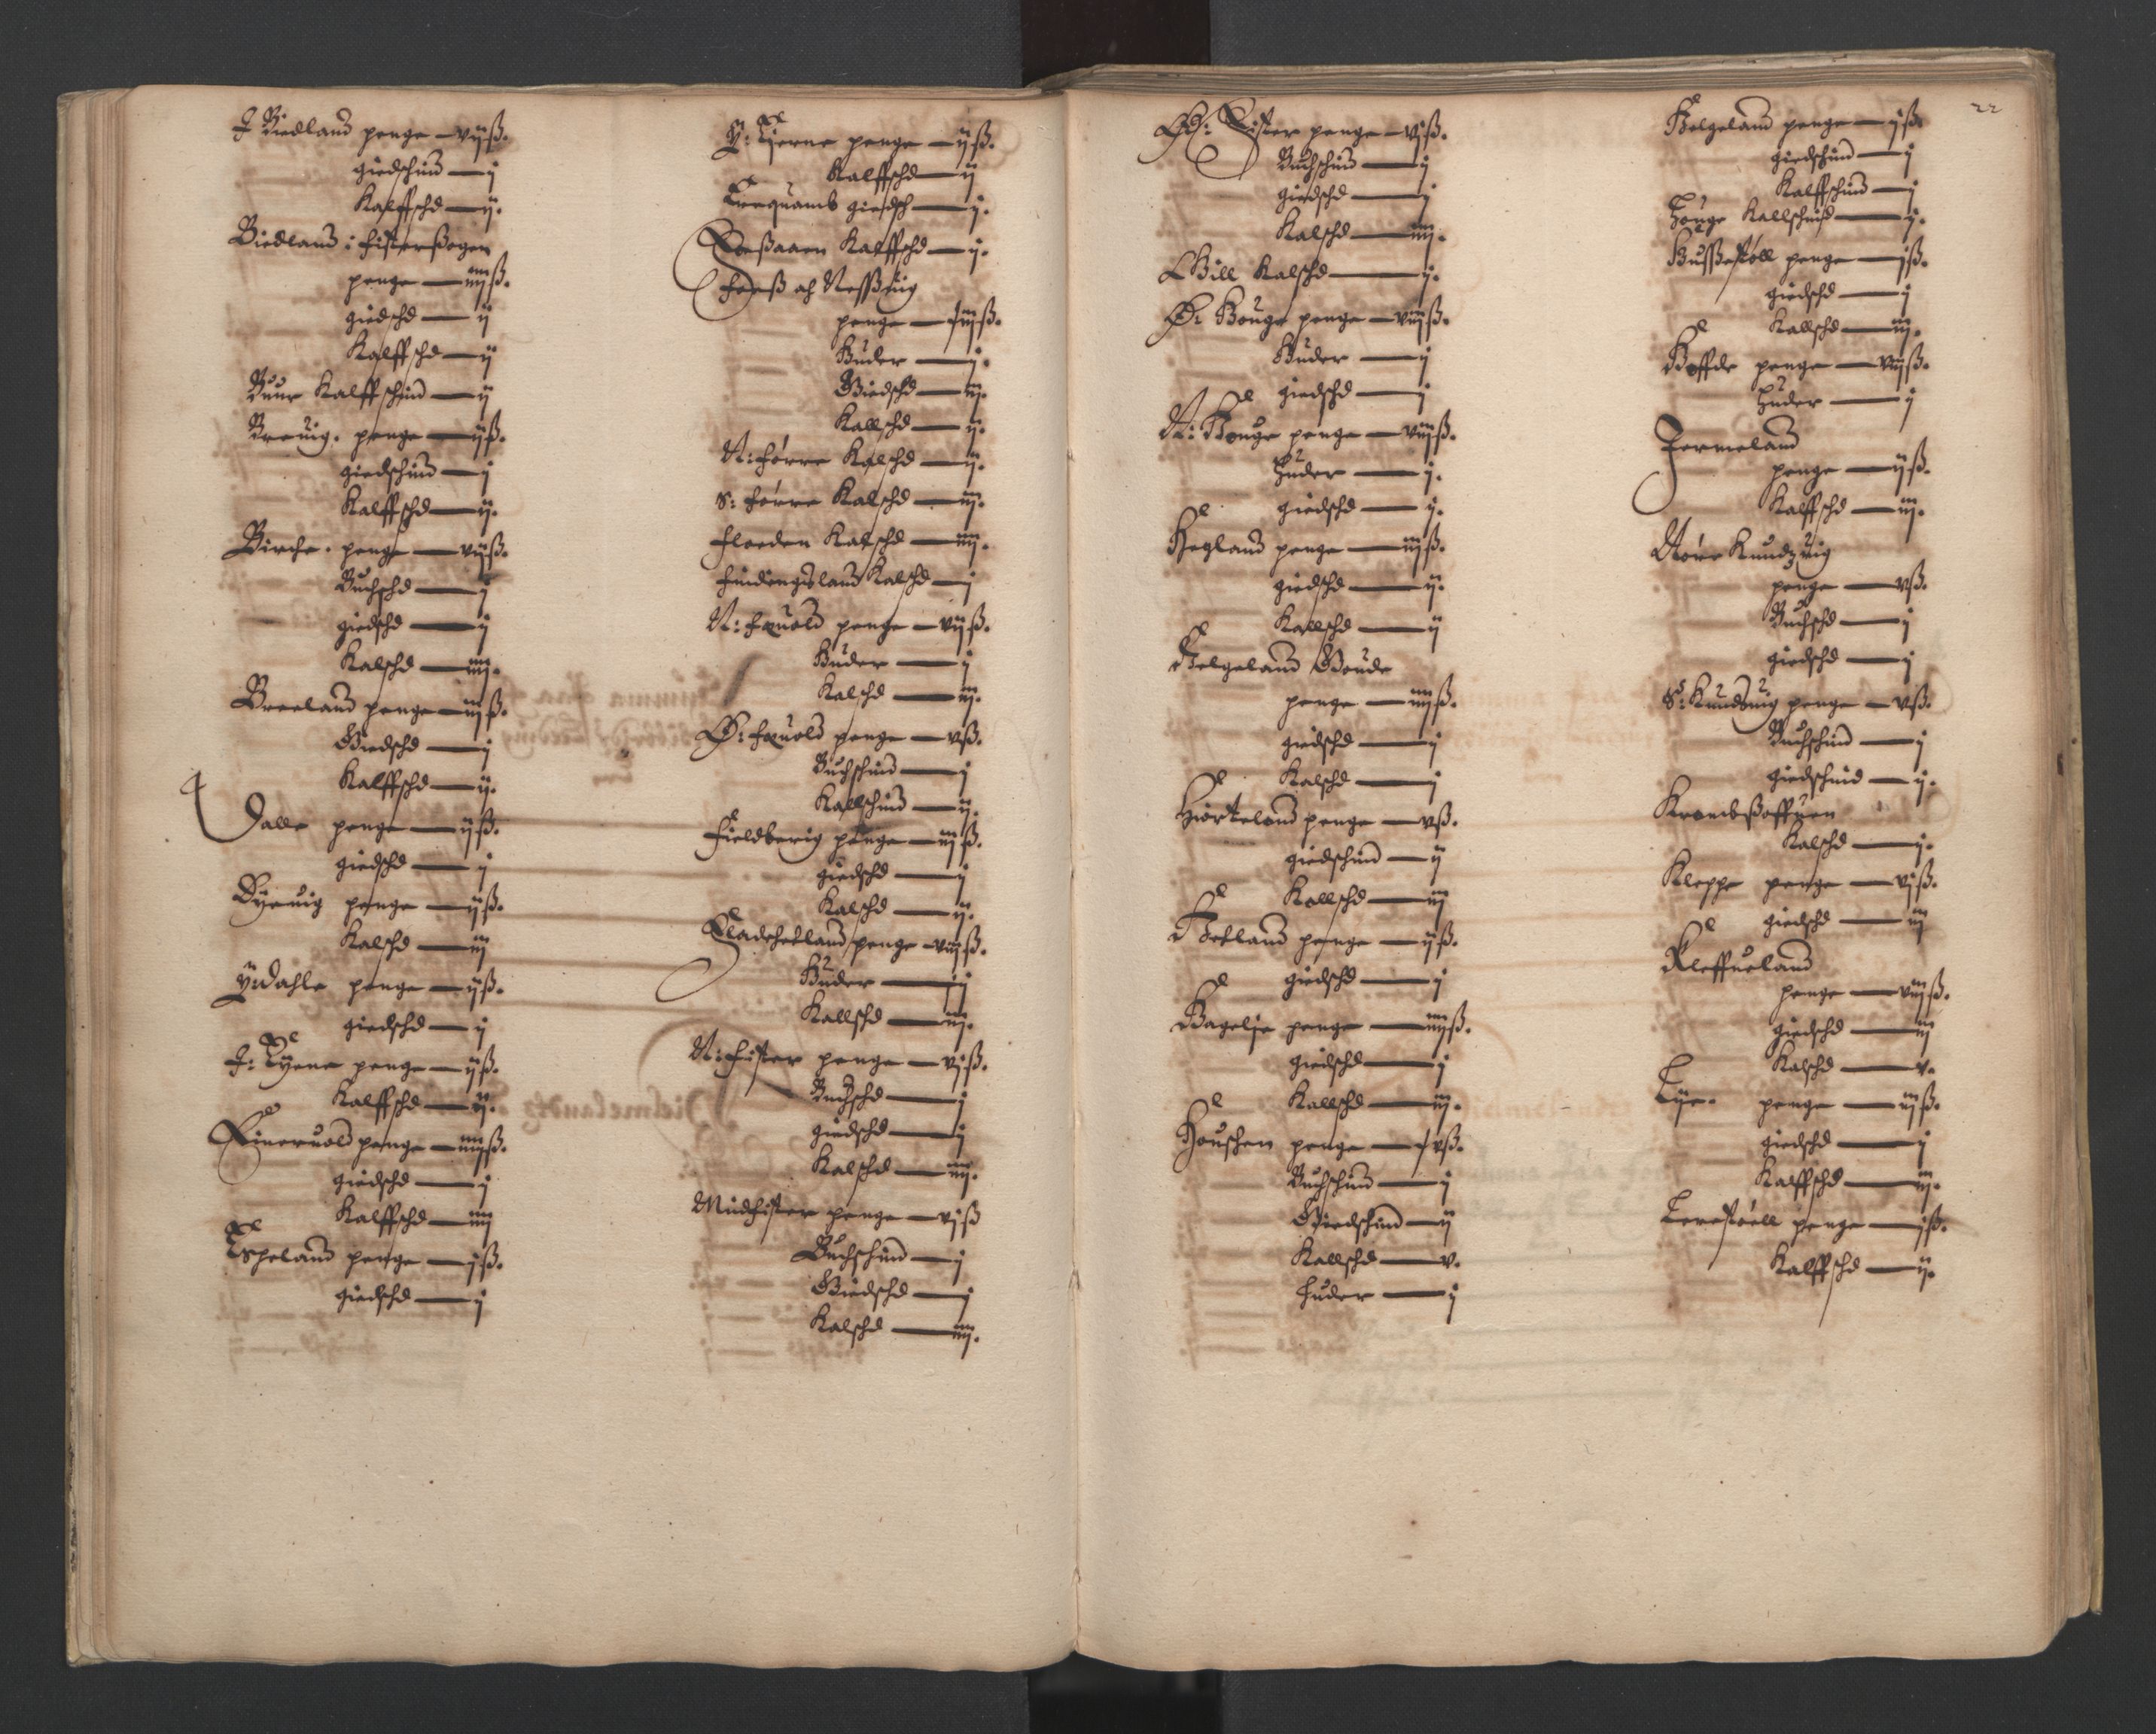 I Biedland penge — vijß.
giedschind — j
Kalffschd — ij.
Biedland i Fisterßogen
penge — iiijß.
giedschd — ij
Kalffschd — ij
Buur Kalffschind — ij
Breuig. penge — ijß.
giedschind — j
Kalffschd — ij.
Birche. penge — viijß.
Buchschd — j
giedschd — j
Kalschd — iiij.
Breeland penge — iijß.
Giedschd — j
Kalffschd — ij.
Dalle penge — ijß.
giedschd — j
Dyruig penge — ijß.
Kalschd — iij
Y: Dahle penge — ijß.
giedschd — j
I: Eyene penge — ijß.
Kalffschd — ij.
Eineruold penge — iiijß.
giedschd — j
Kalffschd — iiij
Espeland penge — jß.
giedschd — j
Y: Eyerne penge — ijß.
Kalffschd — ij
giedsch — j.
Kalffschd — ij.
Foeß aff Neßuig
penge — ß.
Huder — j.
Giedschd — iij.
Kallschd — ij.
N: Førre Kalschd — ij.
S: Førre Kalschd — iij.
Floeden Kalschd — iiij.
Findingsland Kalschd — j
N: Fæuold penge — vijß.
Huder — j
Kalschd — iij.
Ø: Fæuold penge — vß.
Buchschind — j
Kallschind — ij.
Fieldberig penge — iijß.
giedschd — j
Kalschd — ij.
Fladehetland penge — viijß.
Huder — j
Kallschd — iij.
N: Fister penge — vjß.
Buchschd — j
giedschd — j
Kalschd — iiij.
Midfister penge — vjß
Buchschind — j
Giedschd — j
Kalschd — iiij.
22
Ø: Fister penge — vjß.
Buchschind — j
giedschd — j
Kalschd — iiij.
Kalschd — ij.
Ø: Houge penge — viijß.
Huder — j
giedschd — j
N: Houge penge — viijß.
Huder — j.
giedschd — j.
Hegland penge — iijß.
giedschd — ij.
Kallschd — ij
Helgeland Goude
penge — iiijß.
giedschd — j
Kalschd — j
Hiorteland penge — vß.
giedschind — ij
Kallschd — iij
Hetland penge — ijß.
giedschd — j
Hagelje penge — iiijß.
giedschd — j
Kallschd — iij.
Houschen penge — ß.
Buchschind — j
Giedschind — ij
Kallschd — v.
Huder — j
Helgeland penge — ijß.
giedschind — j
Kalffschind — j
Houge Kallschind — ij.
Hußestøll penge — jß.
giedschd — j
Kallschd — iij.
Hoffde penge — viijß.
Huder — j
Jermeland
penge — ijß.
Kalffschd — iij.
Nørr Knudzuig
penge — vß.
Buchschd — j
giedschd — j
S: Knudsuig penge — vß.
Buchschind — j
giedschind — ij.
Kalschd — ij.
Kleppe penge — vjß.
giedschd — iij
Kleffueland
penge — viijß.
giedschd — iij
Kalschd — v.
Lye. penge — iijß.
giedschd — j
Kalffschd — iij.
Lerestøell penge — jß.
Kalffschd — ij.